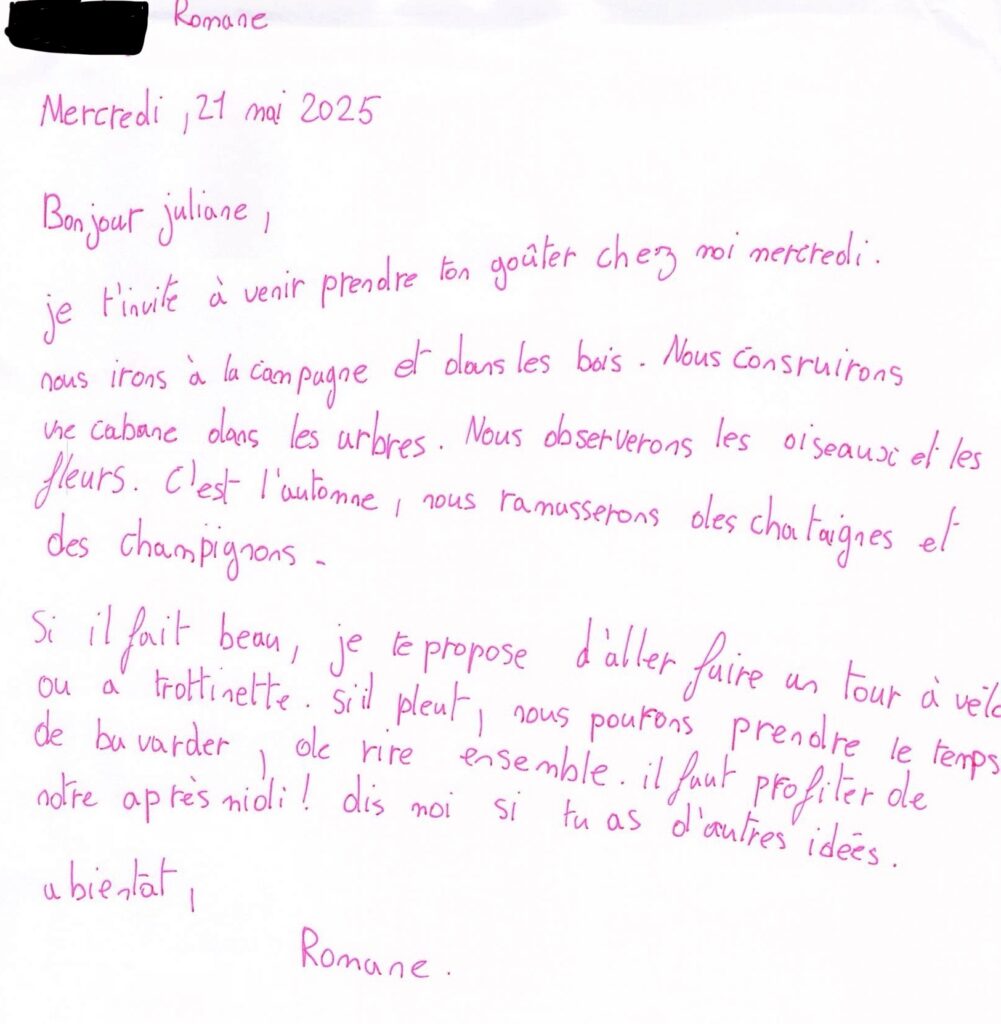 Romane
Mercredi , 21 mai 2025
Bonjour juliane,
je t'invite à venir prendre ton goûter chez moi mercredi.
nous irons à la campagne et dans les bois. Nous consruirons
une cabane dans les arbres. Nous observerons les oiseaux et les
fleurs. C'est l'automne, nous ramasserons des chataignes et
des champignons.
Si il fait beau, je te propose d'aller faire un tour à vélo
ou a trottinette. Si'il pleut, nous pourons prendre le temps
de bavarder, de rire ensemble. il faut profiter de
notre après midi! dis moi si tu as d'autres idées.
a bientôt,
Romane.